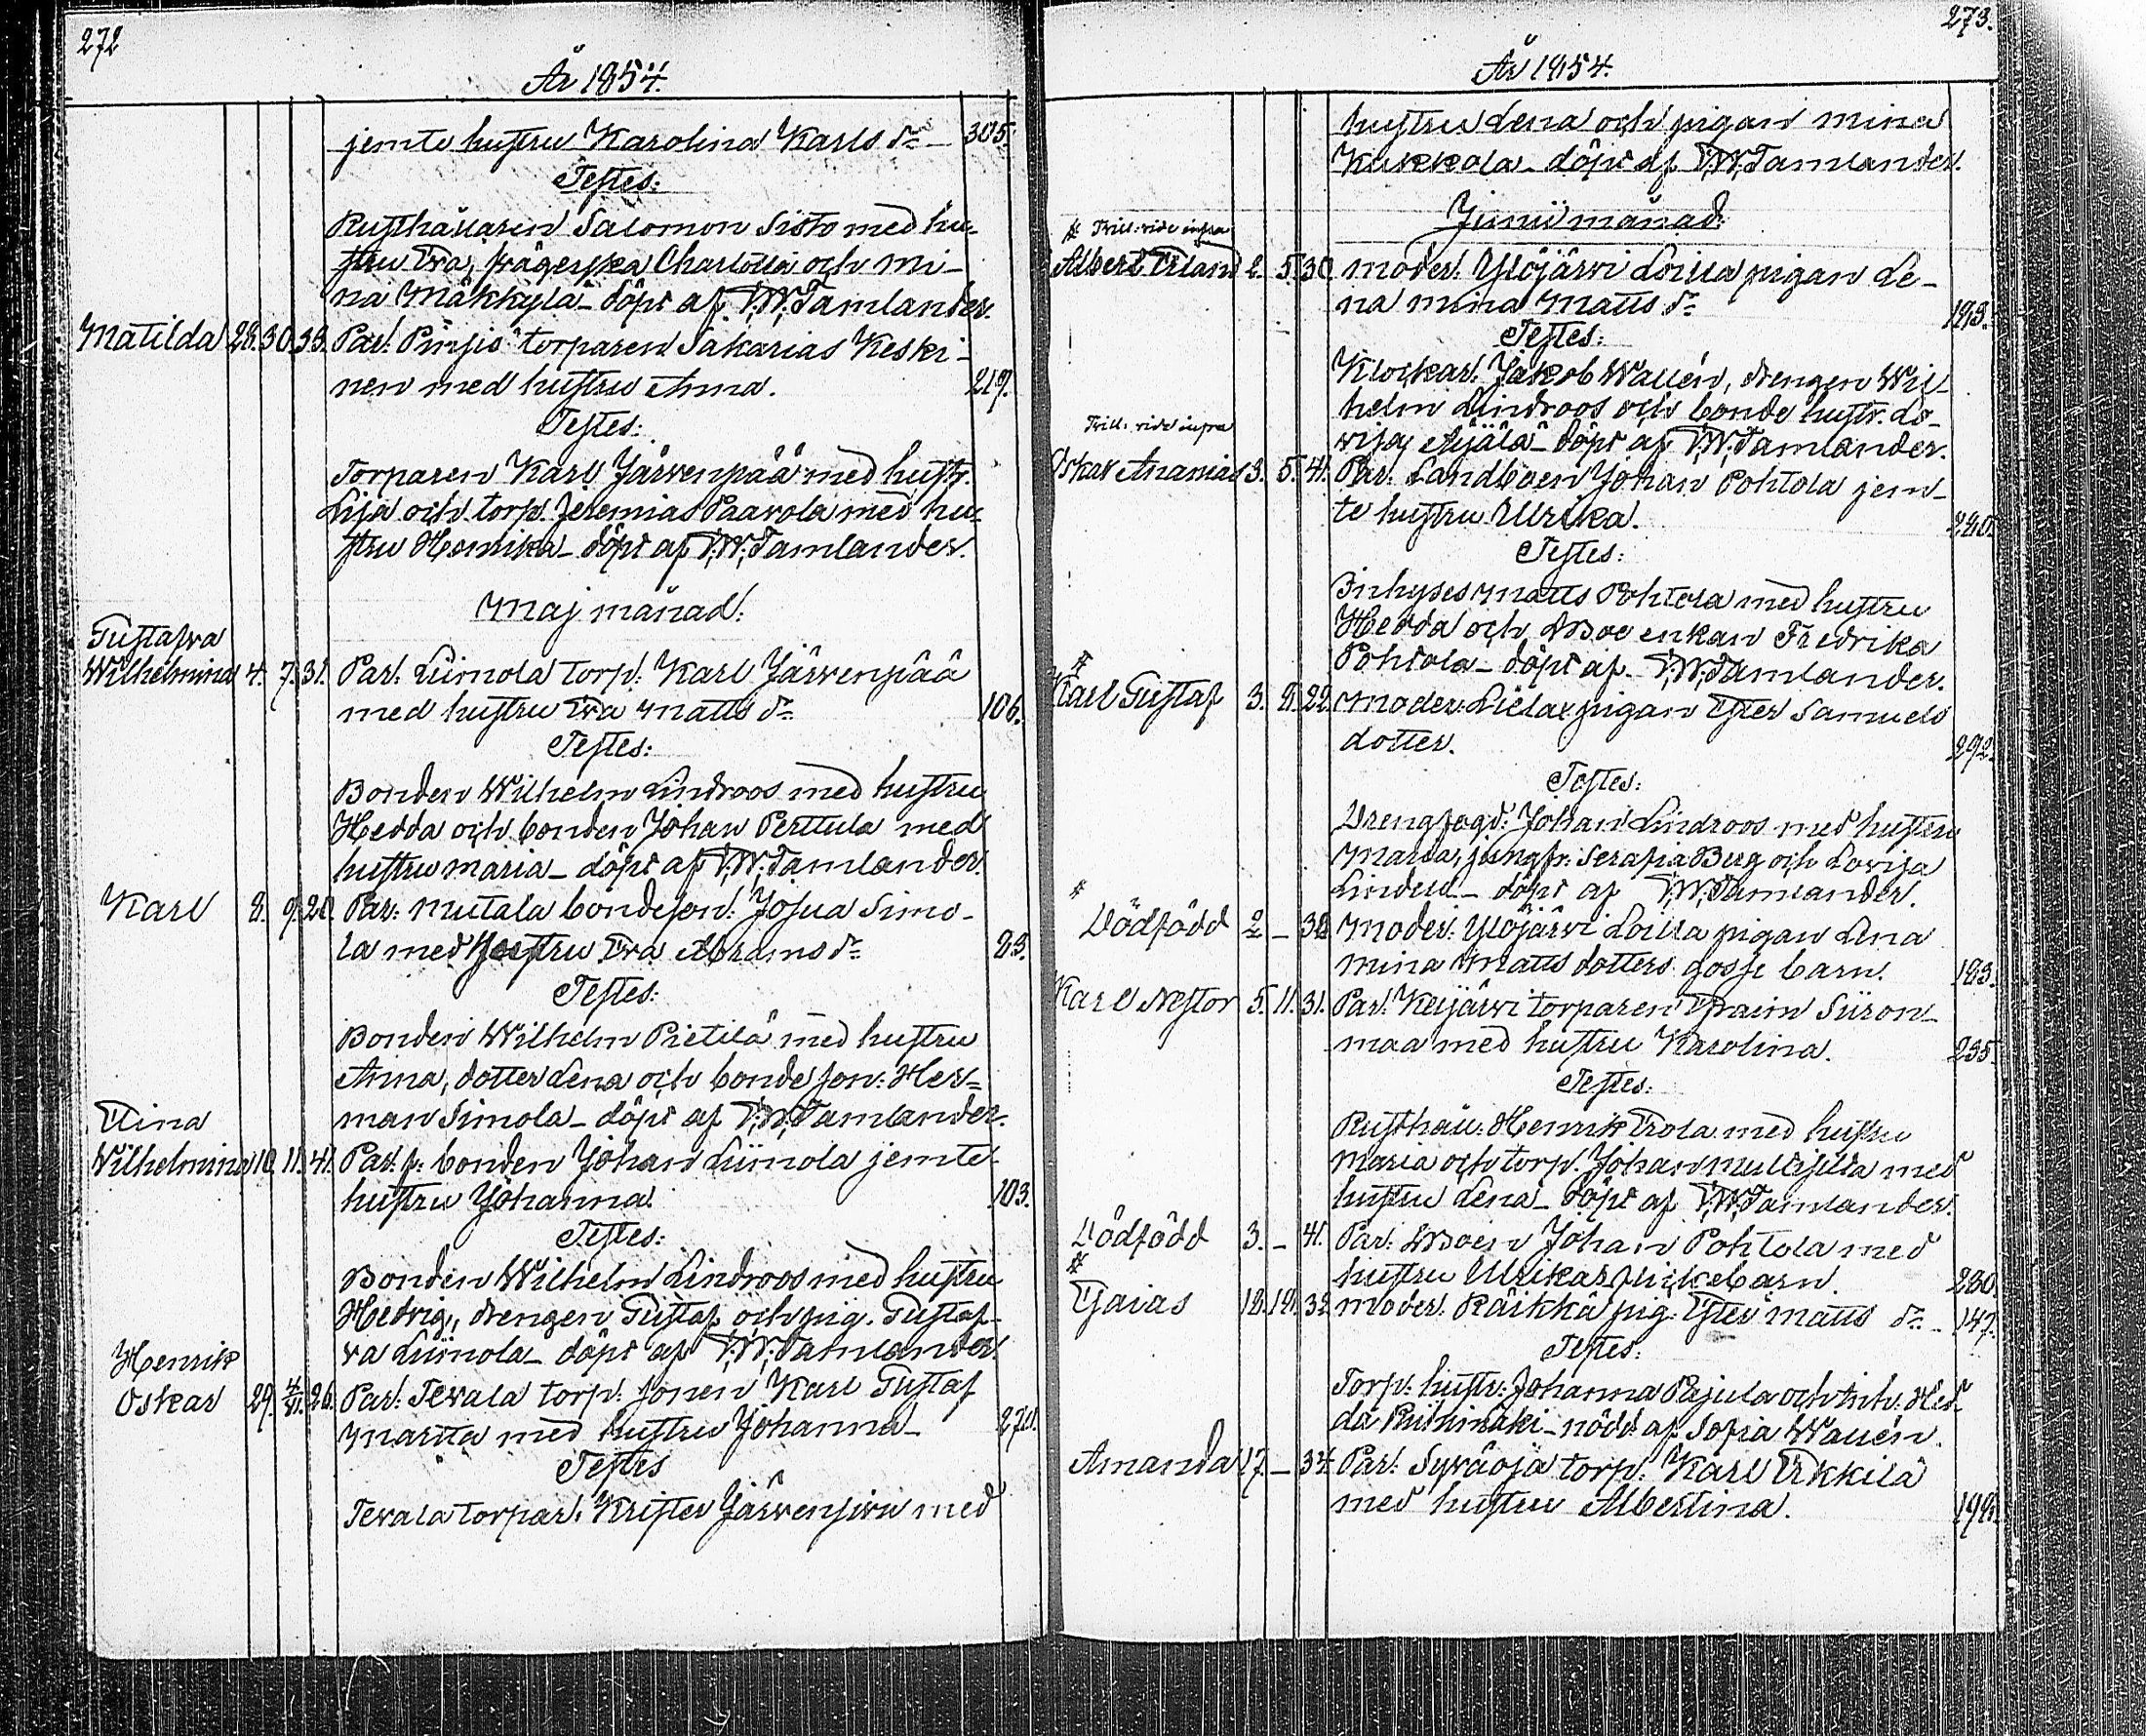 272
År 1854.
jemte hustru Karolina Karls dr 305.
Testes:
Rusthållaren Salomon Sisto med hu-
stru Eva, Charlotta och Mi-
na Mäkkylä - döpt af V. W. Tamlander.
Matilda 28. 30. 33. Par. Pinsiö torparen Sakarias Keski-
nen med hustru Anna. 219.
Testes:
Torparen Karl Järvenpää med hustr.
Lisa och torp. Jeremias Paavola med hu-
stru Henrika - döpt af V. W. Tamlander.
Maj månad.
Gustafva
Wilhelmina 4. 7. 31. Par. Limola torp. Karl Järvenpää
med hustru Eva Matts dr 106.
Testes:
Bonden Wilhelm Lindroos med hustru
Hedda och bonden Johan Perttula med
hustru Maria - döpt af V. W. Tamlander.
Karl 8. 9. 28. Par: Mutala bondeson: Josua Simo-
la med hustru Eva Abrams dr 83.
Testes:
Bonden Wilhelm Pietilä med hustru
Anna, dotter Lena och bondeson: Her-
man Simola - döpt af V. W. Tamlander.
Elina
Wilhelmina 10. 11. 41. Par. f. bonden Johan Limola jemte
hustru Johanna. 103.
Testes:
Bonden Wilhelm Lindroos med hustru
Hedvig, drengen Gustaf och pig. Gustaf-
va Limola - döpt af V. W. Tamlander.
Henrik
Oskar 29. 4/VI. 26. Par: Tevala torp: sonen Karl Gustaf
Martta med hustru Johanna - 270.
Testes
Tevala torpar. Krister Järvensivu med
273.
År 1854.
hustru Lena och pigan Mina
Kukkola - döpt af V. W. Tamlander.
Junii månad.
# Trill: vide infra
Albert Erland 2. 5. 30. Moder. Ylöjärvi Loilla pigan Le-
na Mina Matts dr 183.
Testes:
Klockar. Jakob Wallén, drengen Wil-
helm Lindroos och bonde hustr. Lo-
visa Äijälä - döpt af V. W. Tamlander.
Trill: vide infra
Oskar Ananias 3. 5. 41. Par. Landboen Johan Pohtola jem-
te hustru Ulrika. 280.
Testes:
Inhyses Matts Pohtola med hustru
Hedda och enkan Fredrika
Pohtola - döpt af V. W. Tamlander.
#
Karl Gustaf 3. 8. 22. Moder: pigan Ester Samuels
dotter. 292.
Testes:
Drengfogd: Johan Lindroos med hustru
Maria, jungfr. Serafia Berg och Lovisa
Lindell - döpt af V. W. Tamlander.
#
Dödfödd 2. - 30. Moder: Ylöjärvi Loilla pigan Lena
Mina Matts dotters gosse barn. 183.
Karl Nestor 5. 11. 31. Par. Keijärvi torparen Efraim Siiron-
maa med hustru Karolina. 235.
Testes:
Rusthåll: Henrik Erola med hustru
Maria och torp. Johan Multisilta med
hustru Lena - döpt af V. W. Tamlander.
Dödfödd 3. - 41. Par. Johan Pohtola med
hustru Ulrikas flickebarn. 280.
#
Esaias 12. 12. 32. Moder. Räikkä pig. Ester Matts dr - 147.
Testes:
Torp: hustr: Johanna Pajula och inh: Hed-
da - nödd. af Sofia Wallén.
Amanda 17. - 34. Par. torp. Karl Erkkilä
med hustru Albertina.